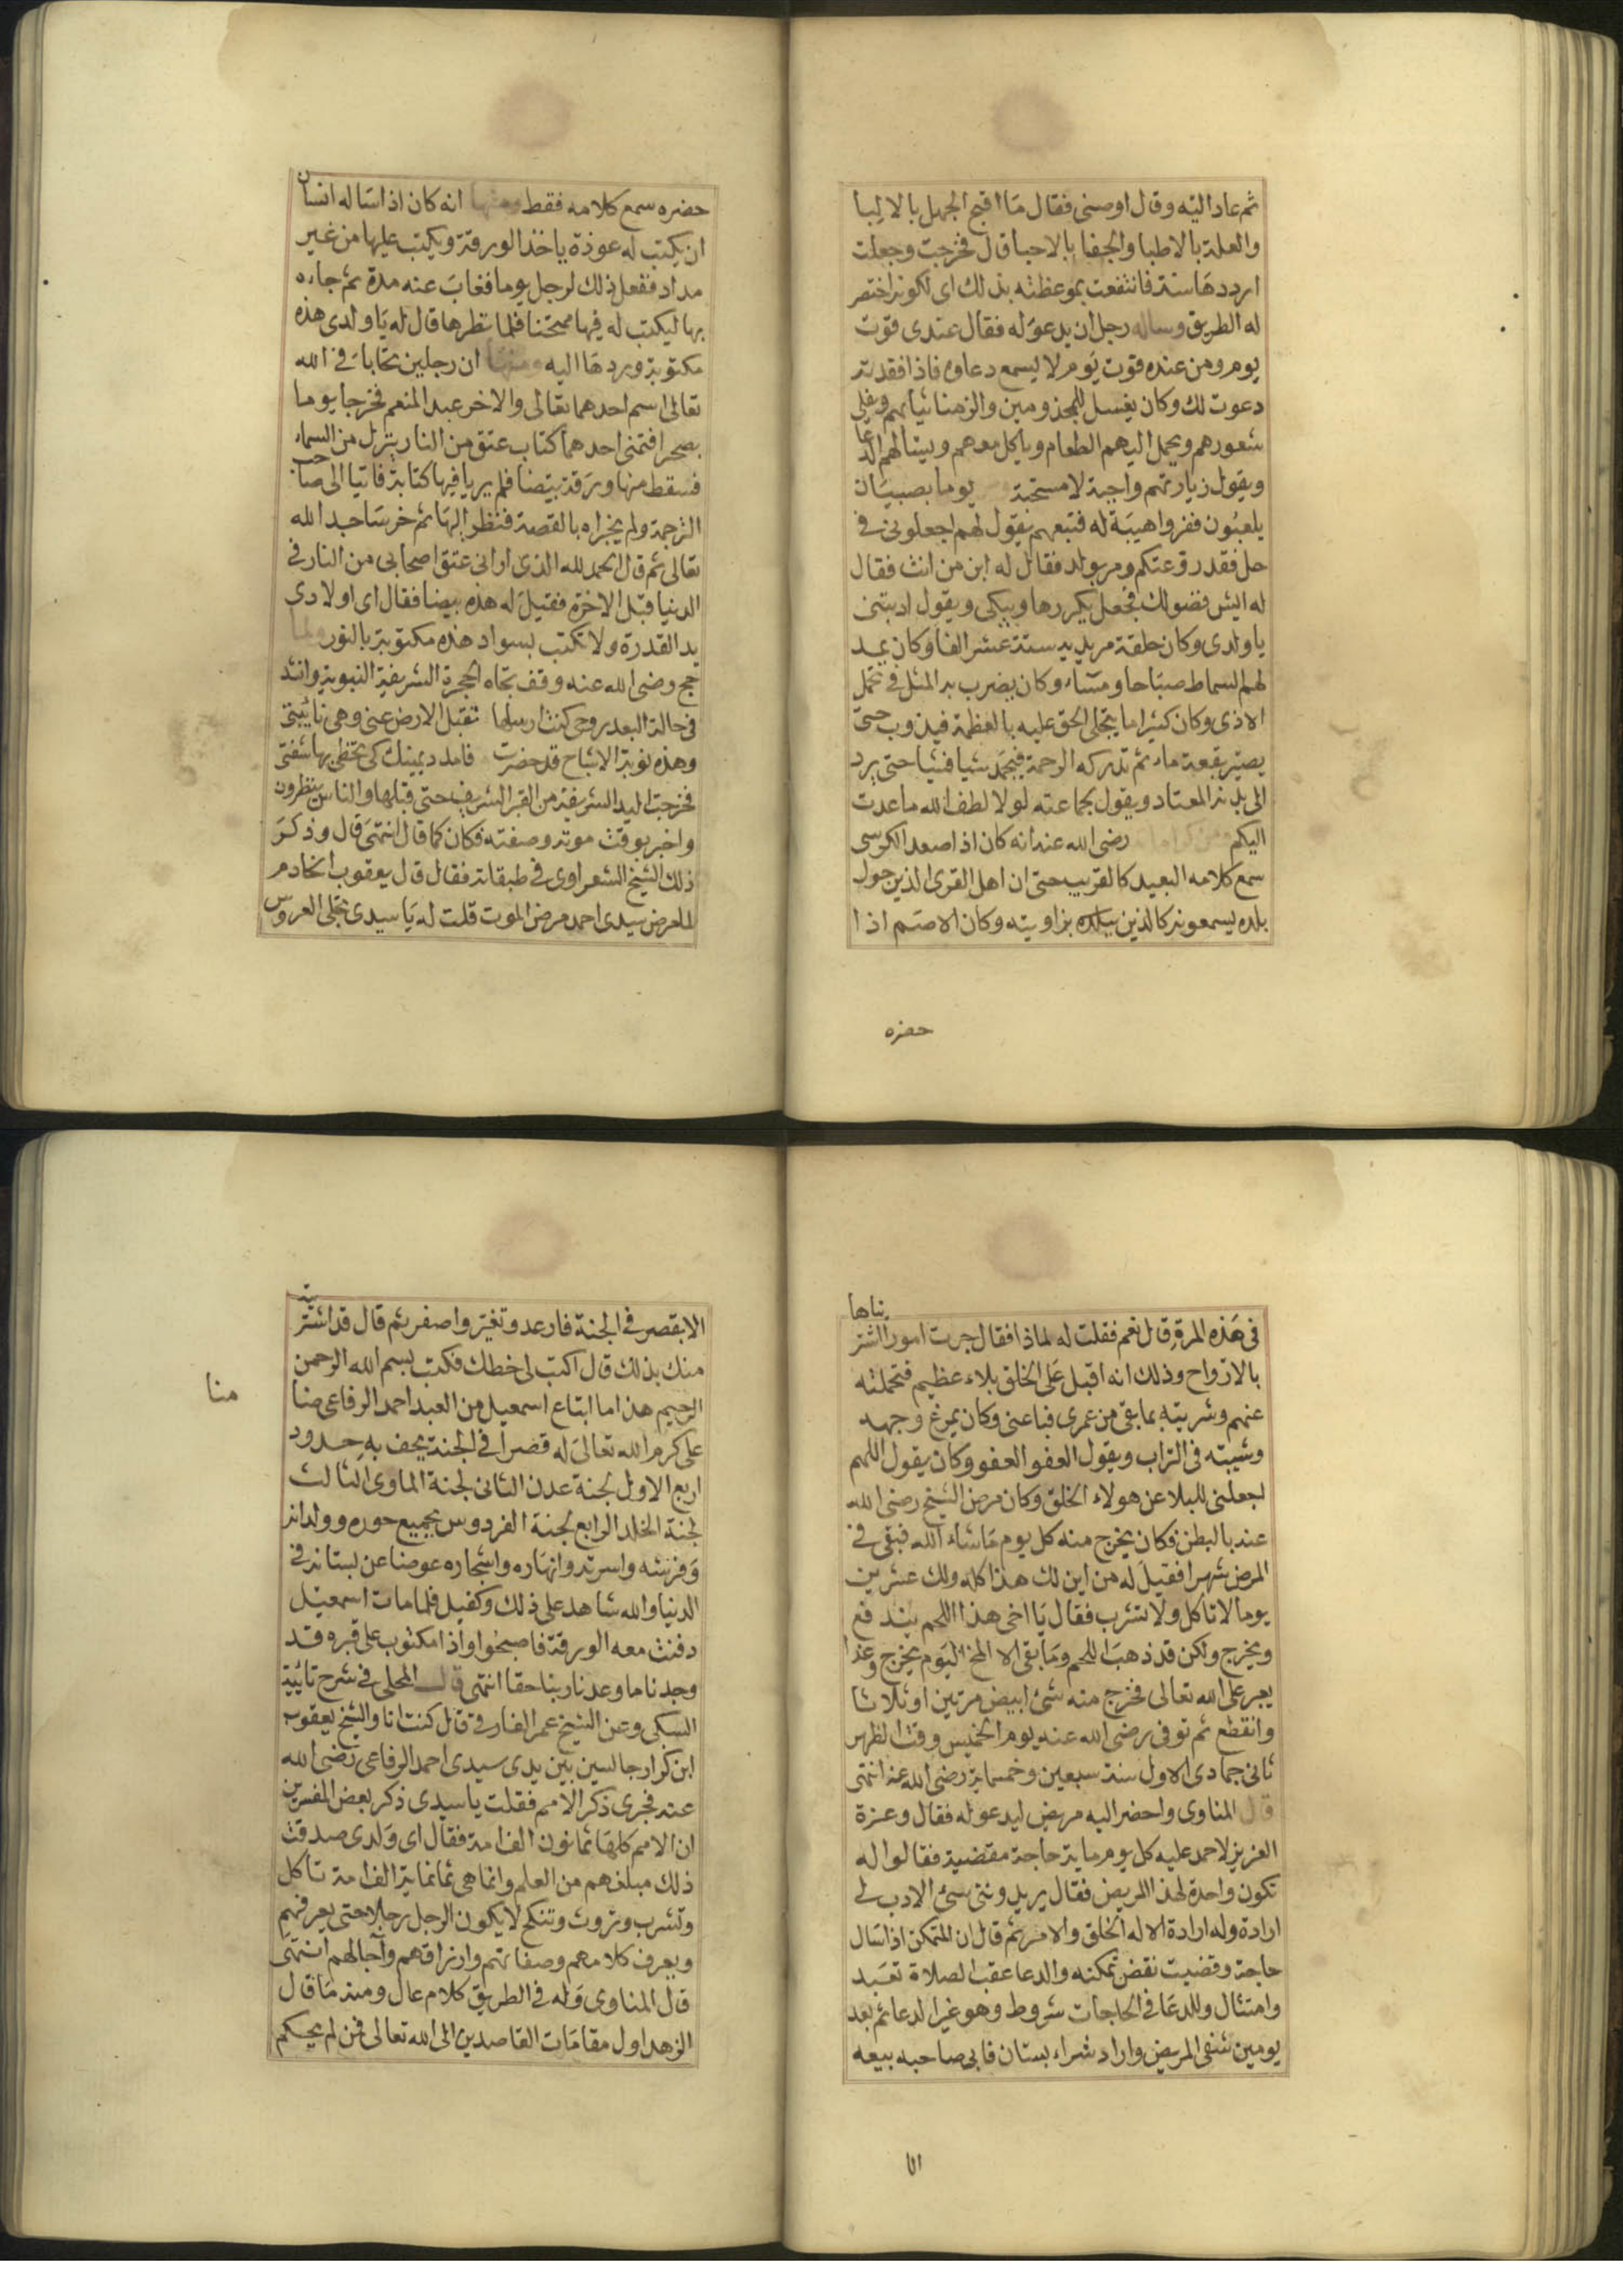 ثم عاد اليه وقال اوصنى فقال ما اقبح الجهل بالالبا
والعلة بالاطبا والجفا بالاحبا قال فخرجت وجعلت
ارددها سنة فانتفعت بموعظته بذلك اى لكونه اختصر
له الطريق وساله رجل ان يدعو له فقال عندى قوت
يوم ومن عنده قوت يوم لا يسمع دعاوه فاذا فقدته
دعوت لك وكان يغسل للمجذومين والزمنا ثيابهم ويفلى
شعورهم ويحمل اليهم الطعام وياكل معهم ويسالهم الدعا
ويقول زيارتهم واجبة لا مستحبة يوما بصبيان
يلعبون ففروا هيبة له فتبعهم يقول لهم اجعلونى فى
حل فقد روعتكم ومر بولد فقال له ابن من انت فقال
له ايش فضولك فجعل يكررها ويبكى ويقول ادبتنى
يا ولدى وكان حلقة مريديه ستة عشر الفا وكان يمد
لهم السماط صباحا ومساء وكان يضرب به المثل فى تحمل
الاذى وكان كثيرا ما يتجلى الحق عليه بالعظمة فيذوب حتى
يصير بقعة ماء ثم تدركه الرحمة فيجمد شيا فشيا حتى يرد
الى بدنه المعتاد ويقول لجماعته لولا لطف الله ما عدت
اليكم ومن كراماته رضى الله عنه انه كان اذا صعد الكرسى
سمع كلامه البعيد كالقريب حتى ان اهل القرى الذين حول
بلده يسمعونه كالذين ببلده بزاويته وكان الاصم اذا
حضره
حضره سمع كلامه فقط ومنها انه كان اذا ساله انسان
ان يكتب له عوذة ياخذ الورقة ويكتب عليها من غير
مداد ففعل ذلك لرجل يوما فغاب عنه مدة ثم جاءه
بها ليكتب له فيها ممتحنا فلما نظرها قال له يا ولدى هذه
مكتوبة وردها اليه ومنها ان رجلين تحابا فى الله
تعالى اسم احدهما تعالى والاخر عبد المنعم فخرجا يوما
بصحرا فتمنى احدهما كتاب عتق من النار ينزل من السماء
فسقط منها ورقة بيضا فلم يريا فيها كتابة فاتيا الى صاحب
الترجمة ولم يخبراه بالقصة فنظر اليها ثم خر ساجدا لله
تعالى ثم قال الحمد لله الذى ارانى عتق اصحابى من النار فى
الدنيا قبل الاخرة فقيل له هذه بيضا فقال اى اولادى
يد القدرة ولا تكتب بسواد هذه مكتوبة بالنور ولما
حج رضى الله عنه وقف تجاه الحجرة الشريفة النبوية وانشد
فى حالة البعد روحى كنت ارسلها تقبل الارض عنى وهى نائبتى
وهذه نوبة الاشباح قد حضرت فامدد يمينك كى تحظى بها شفتى
فخرجت اليد الشريفة من القبر الشريف حتى قبلها والناس ينظرون
واخبر بوقت موته وصفته فكان كما قال انتهى قال وذكر
ذلك الشيخ الشعراوى فى طبقاته فقال قال يعقوب الخادم
لما مرض سيدى احمد مرض الموت قلت له يا سيدى تجلى العروس
فى هذه المرة قال نعم فقلت له لماذا فقال جرت امور اشتريناها
بالارواح وذلك انه اقبل على الخلق بلاء عظيم فتحملته
عنهم وشريته بما بقى من عمرى فباعنى وكان يمرغ وجهه
وشيبته فى التراب ويقول العفو العفو وكان يقول اللهم
اجعلنى للبلا عن هولاء الخلق وكان مرض الشيخ رضى الله
عنه بالبطن فكان يخرج منه كل يوم ما شاء الله فبقى فى
المرض شهرا فقيل له من اين لك هذا كله ولك عشرين
يوما لا تاكل ولا تشرب فقال يا اخى هذا اللحم يندفع
ويخرج ولكن قد ذهب اللحم وما بقى الا المخ اليوم يخرج وغدا
يعبر على الله تعالى فخرج منه شئ ابيض مرتين او ثلاثا
وانقطع ثم توفى رضى الله عنه يوم الخميس وقت الظهر
ثانى جمادى الاول سنة سبعين وخمسماية رضى الله عنه انتهى
قال المناوى واحضر اليه مريض ليدعو له فقال وعزة
العزيز لاحمد عليه كل يوم ماية حاجة مقضية فقالوا له
تكون واحدة لهذا المريض فقال يريدوننى سئ الادب لى
ارادة وله ارادة الا له الخلق والامر ثم قال ان المتمكن اذا سال
حاجة وقضيت نقض تمكنه والدعا عقب الصلاة تعبد
وامتثال وللدعا فى الحاجات شروط وهو غير الدعا ثم بعد
يومين شفى المريض واراد شراء بستان فابى صاحبه بيعه
الا
الا بقصر فى الجنة فارعد وتغير واصفر ثم قال قد اشتريته
منك بذلك قال اكتب لى خطك فكتب بسم الله الرحمن
الرحيم هذا ما ابتاع اسمعيل من العبد احمد الرفاعى ضامنا
على كرم الله تعالى له قصرا فى الجنة يحف به حدود
اربع الاول لجنة عدن الثانى لجنة الماوى الثالث
لجنة الخلد الرابع لجنة الفردوس بجميع حوره وولدانه
وفرشه واسرته وانهاره واشجاره عوضا عن بستانه فى
الدنيا والله شاهد على ذلك وكفيل فلما مات اسمعيل
دفنت معه الورقة فاصبحوا واذا مكتوب على قبره قد
وجدنا ما وعدنا ربنا حقا انتهى قال المحلى فى شرح تائية
السبكى وعن الشيخ عمر الفاروقى قال كنت انا والشيخ يعقوب
ابن كراز جالسين بين يدى سيدى احمد الرفاعى رضى الله
عنه فجرى ذكر الامم فقلت يا سيدى ذكر بعض المفسرين
ان الامم كلها ثمانون الف امة فقال اى ولدى صدقت
ذلك مبلغهم من العلم وانما هى ثمانماية الف امة تاكل
وتشرب وتروث وتنكح لا يكون الرجل رجلا حتى يعرفهم
ويعرف كلامهم وصفاتهم وارزاقهم وآجالهم انتهى
قال المناوى وله فى الطريق كلام عال ومنه ما قال
الزهد اول مقامات القاصدين الى الله تعالى فمن لم يحكم
منا